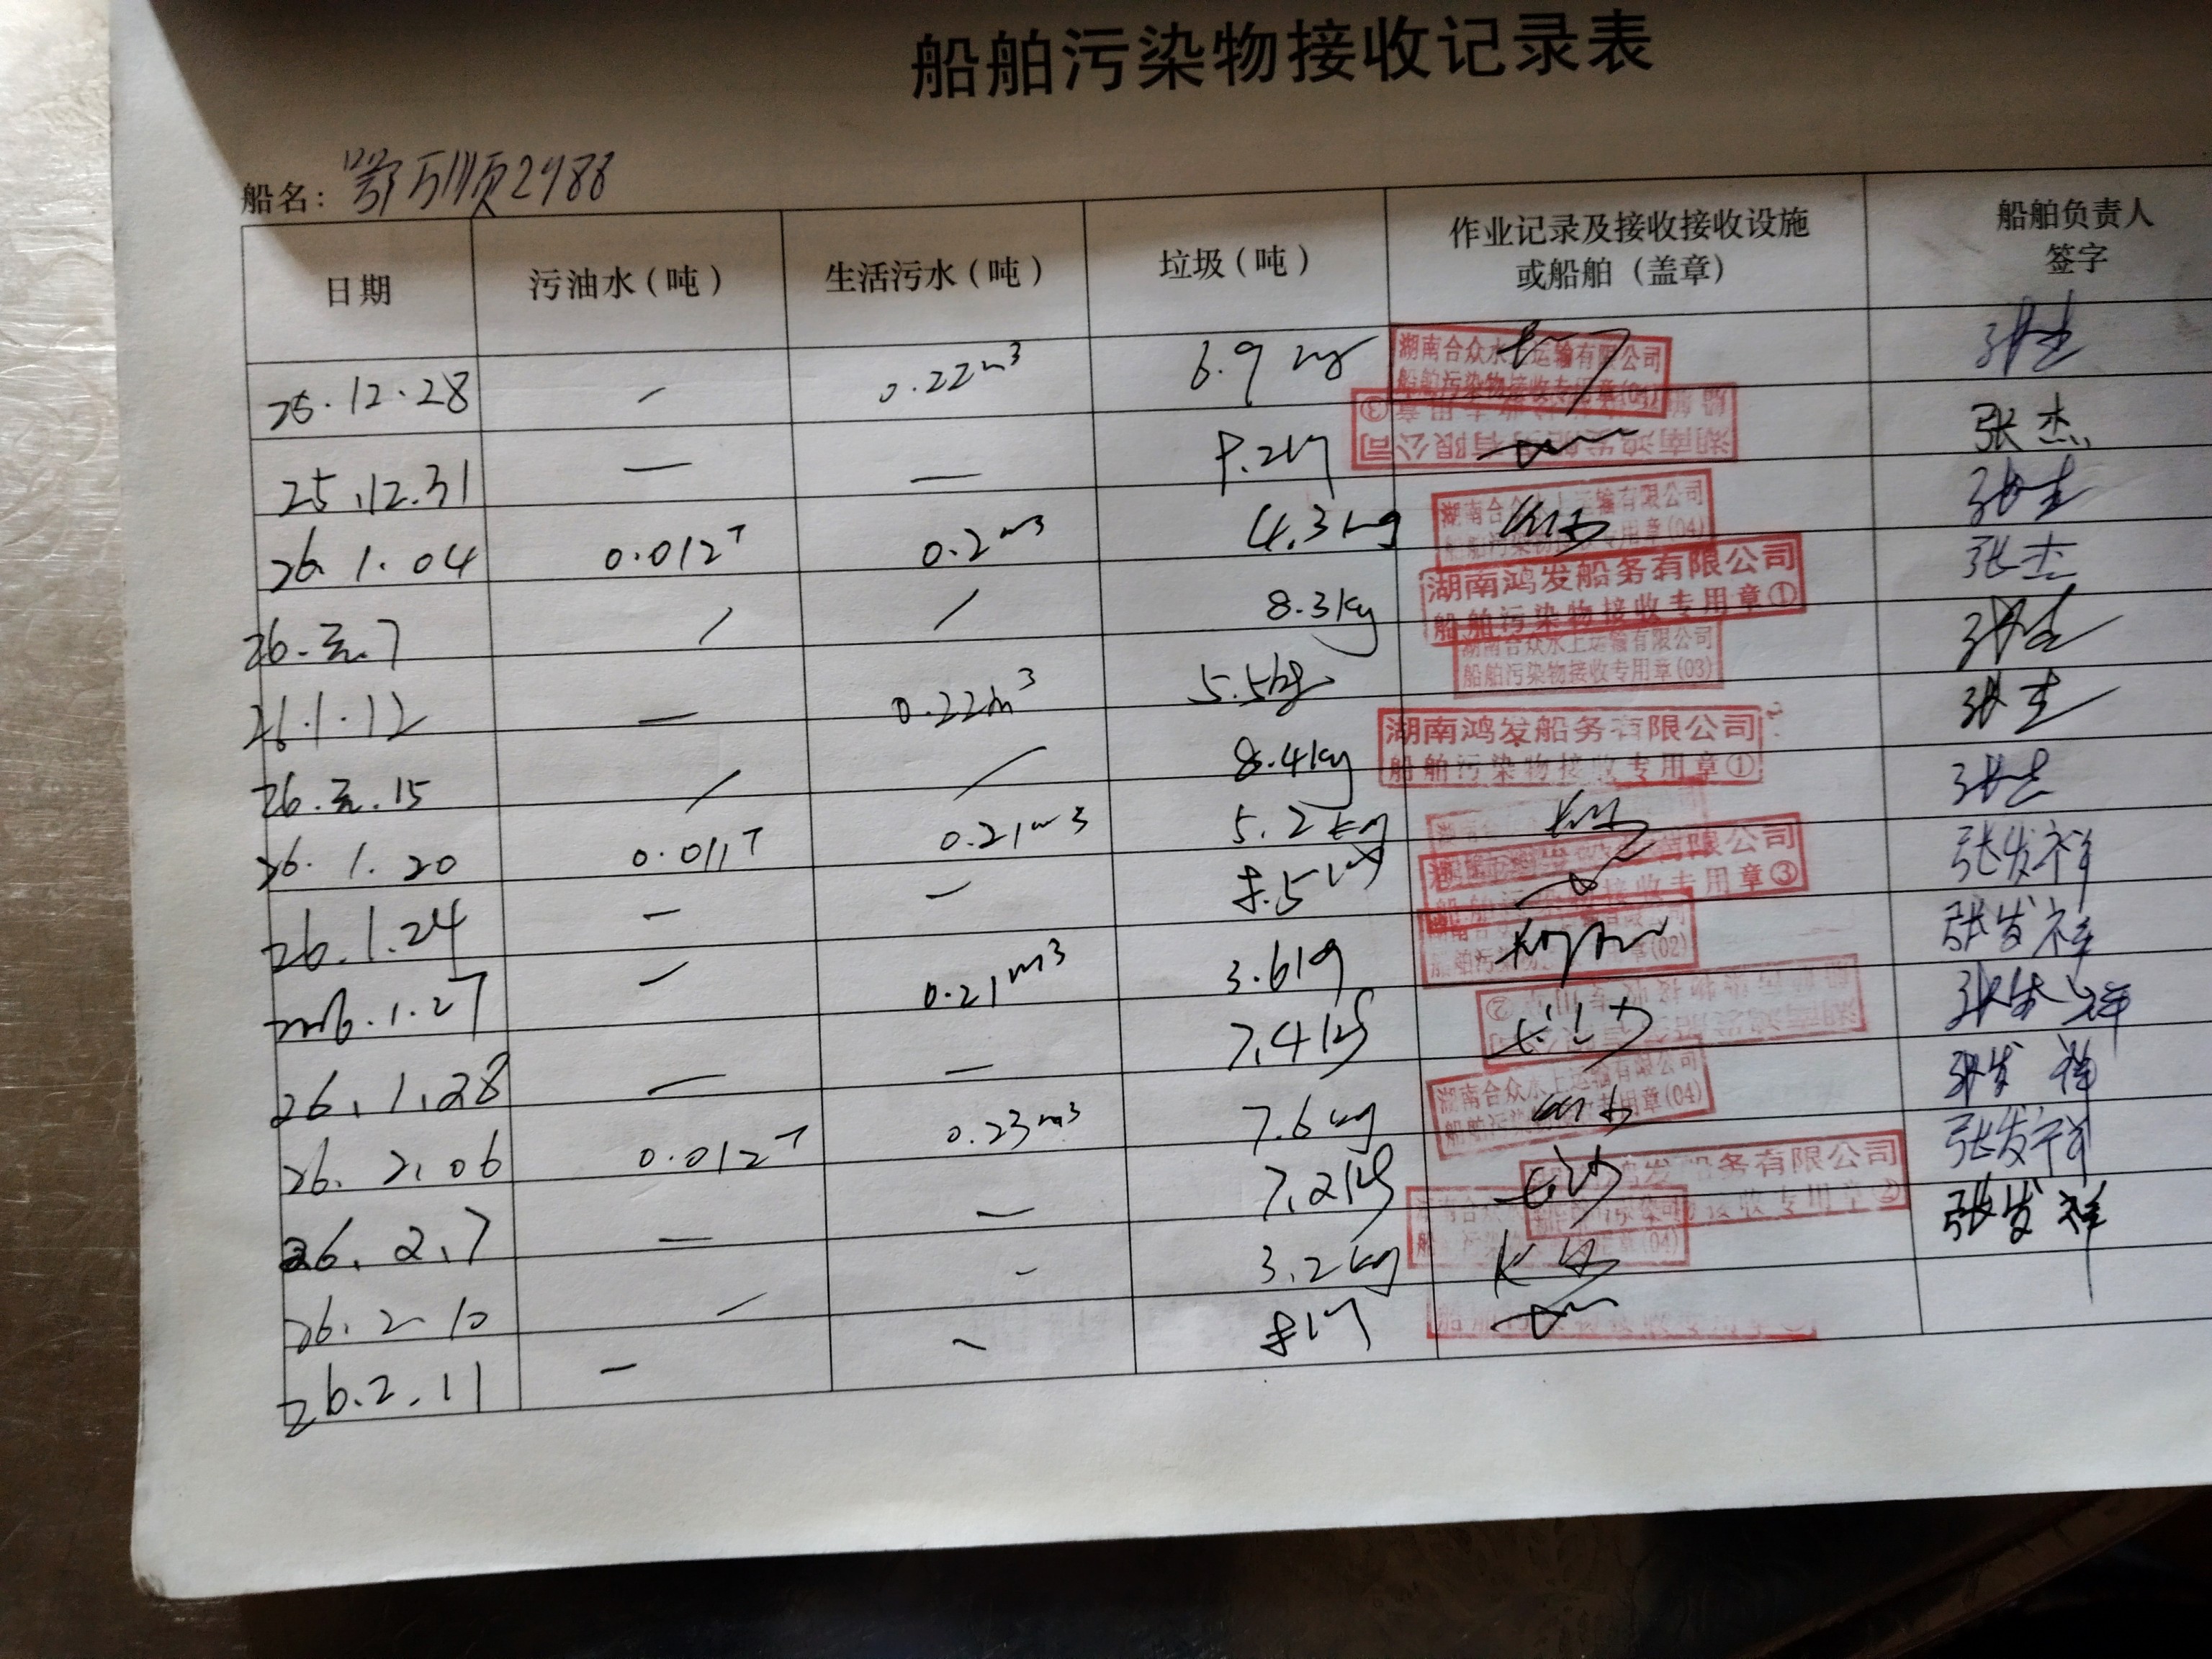 船舶污染物接收记录表
船名：鄂万顺2988
日期 污油水（吨） 生活污水（吨） 垃圾（吨） 作业记录及接收接收设施或船舶（盖章） 船舶负责人签字
25.12.28 — 0.22m³ 6.9kg 湖南合众水上运输有限公司 船舶污染物接收专用章 张杰
25.12.31 — — 湖南鸿发船务有限公司 ③ 张杰
26.1.04 0.012T 0.2m³ 4.3kg 湖南合众水上运输有限公司 船舶污染物接收专用章(04) 长沙 张杰
26.元.7 / / 8.3kg 湖南鸿发船务有限公司 船舶污染物接收专用章① 张杰
26.1.12 — 0.22m³ 5.5kg 湖南合众水上运输有限公司 船舶污染物接收专用章(03) 张杰
26.元.15 / / 8.4kg 湖南鸿发船务有限公司 船舶污染物接收专用章① 张杰
26.1.20 0.011T 0.21m³ 5.2kg 长沙 张杰
26.1.24 — — 8.5kg 湖南鸿发船务有限公司 船舶污染物接收专用章③ 张发祥
26.1.27 — 0.21m³ 3.6kg (02) 张发祥
26.1.28 — — 7.4kg ② 长沙 张发祥
26.2.06 0.012T 0.23m³ 7.6kg 湖南合众水上运输有限公司 船舶污染物接收专用章(04) 长沙 张发祥
26.2.7 — — 7.2kg 鸿发船务有限公司 接收专用章② 长沙 张发祥
26.2.10 — — 3.2kg (04) 长沙 张发祥
26.2.11 — — 8kg